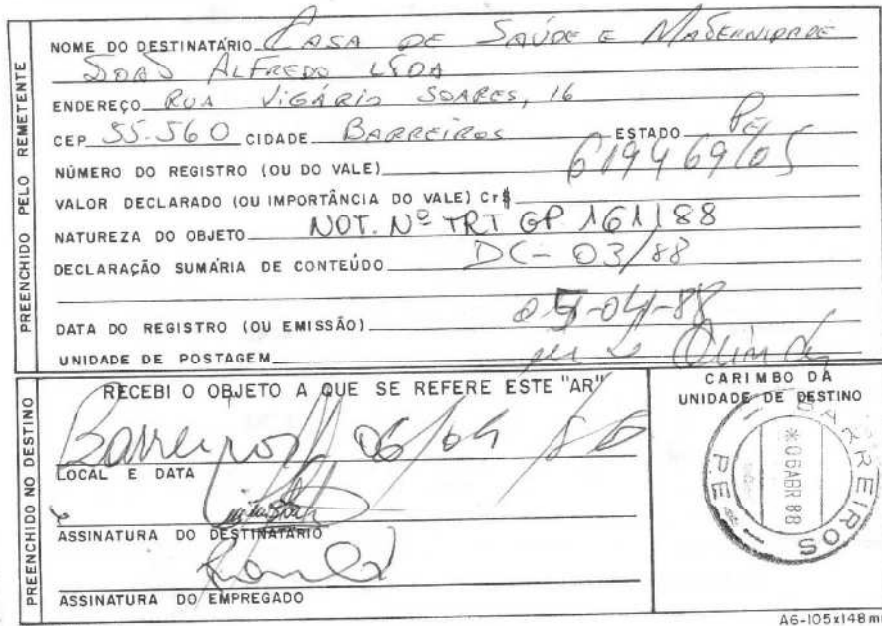 PREENCHIDO PELO REMETENTE
NOME DO DESTINATÁRIO CASA DE SAÚDE E MATERNIDADE
JOÃO ALFREDO LTDA
ENDEREÇO RUA VIGÁRIO SOARES, 16
CEP 55.560 CIDADE BARREIROS ESTADO PE
NÚMERO DO REGISTRO (OU DO VALE) 619469/05
VALOR DECLARADO (OU IMPORTÂNCIA DO VALE) Cr$
NATUREZA DO OBJETO NOT. Nº TRT GP 161/88
DECLARAÇÃO SUMÁRIA DE CONTEÚDO DC- 03/88
DATA DO REGISTRO (OU EMISSÃO) 05-04-88
UNIDADE DE POSTAGEM
PREENCHIDO NO DESTINO
RECEBI O OBJETO A QUE SE REFERE ESTE "AR"
Barreiros 06/04/88
LOCAL E DATA
ASSINATURA DO DESTINATÁRIO
ASSINATURA DO EMPREGADO
CARIMBO DA
UNIDADE DE DESTINO
BARREIROS
*06ABR88
PE
A6-105x148m